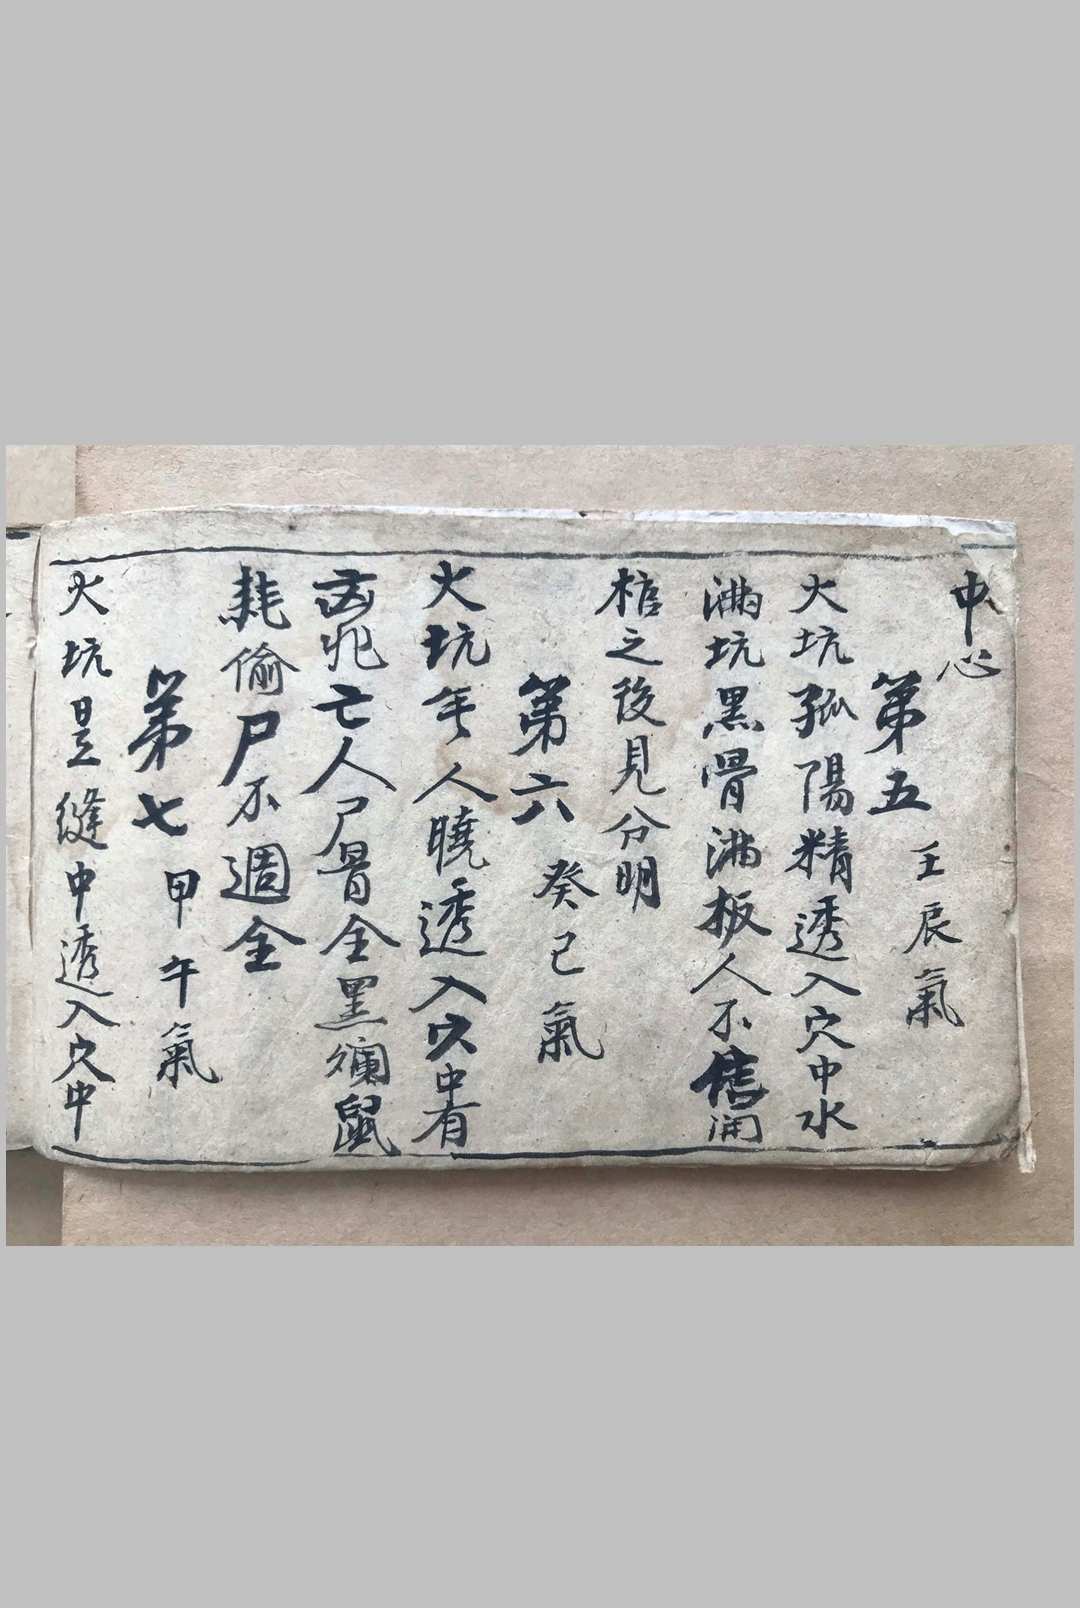 中心
第五 壬辰氣
火坑孤陽精透入穴中水
滿坑黑骨滿板人不信開
棺之後見分明
第六 癸巳氣
火坑 人曉透入穴中有
凶兆亡人尸骨全黑爛鼠
耗偷尸不週全
第七 甲午氣
火坑是縫中透入穴中